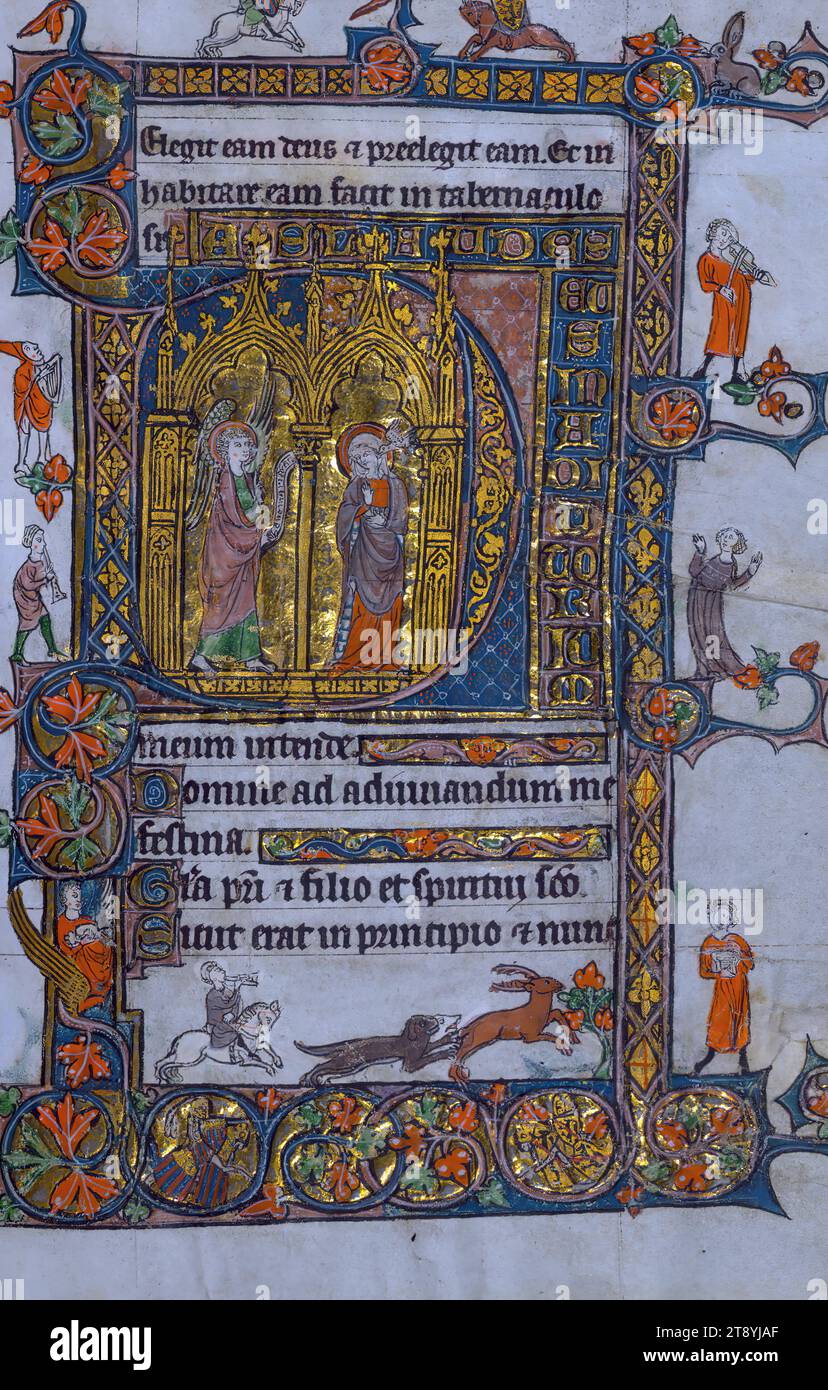 Elegit eam deus ⁊ preelegit eam. Et in
habitare eam facit in tabernaculo
LAUDES
ADIUTORIUM
meum intende
Domine ad adiuuandum me
festina.
Gl'a pri ⁊ filio et spiritui sco
Sicut erat in principio ⁊ nunc
alamy
Image ID: 2T8YJAF
www.alamy.com